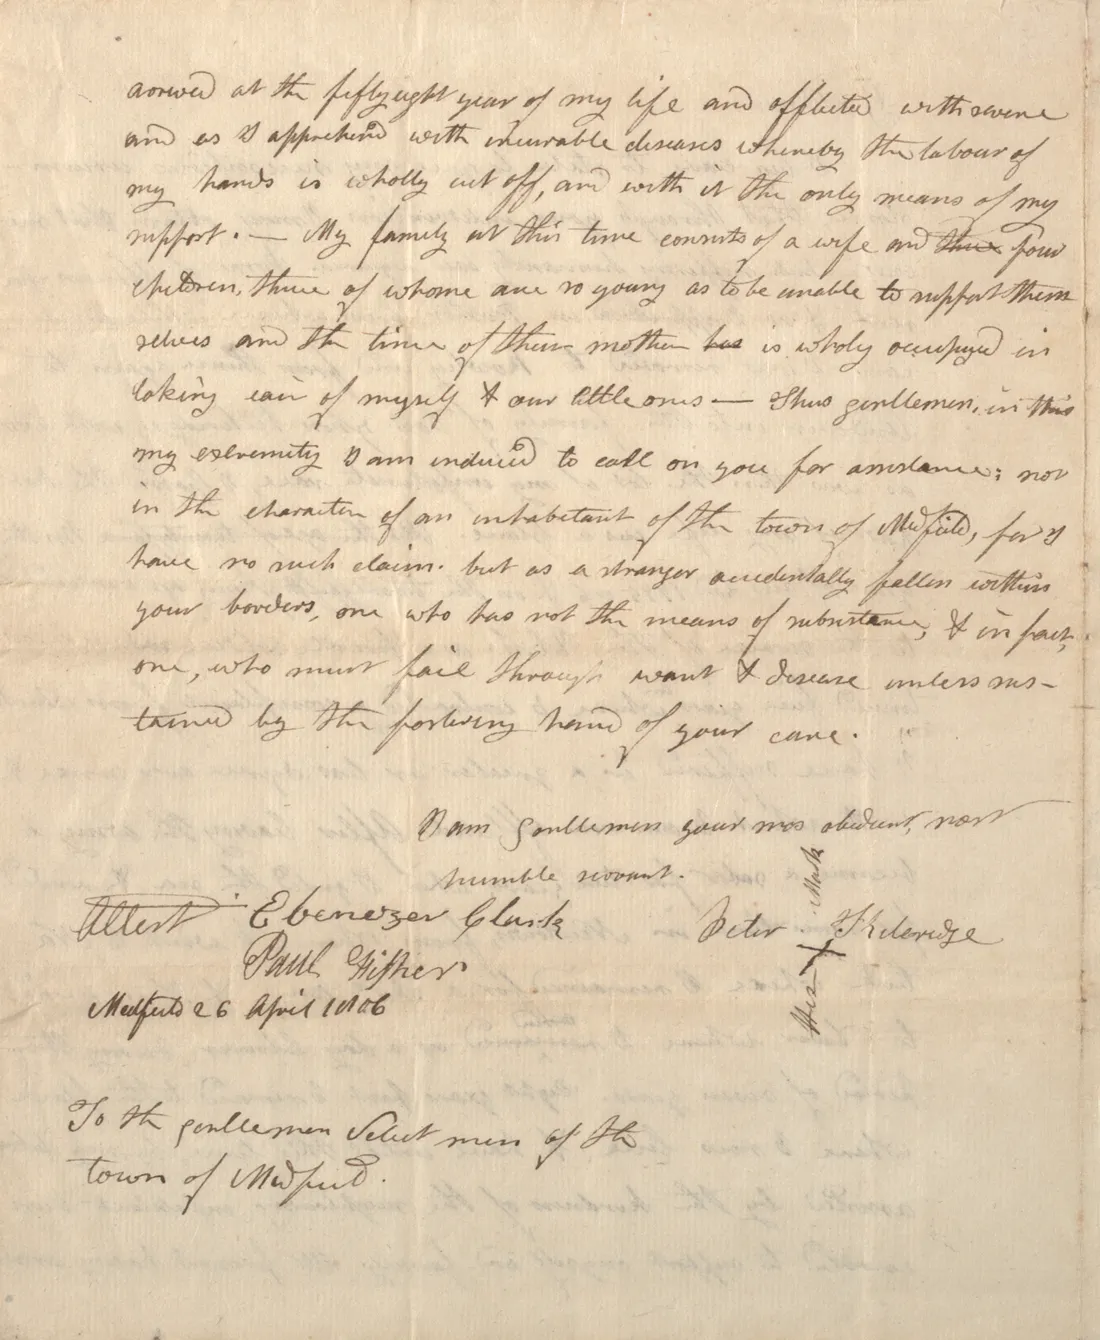 arived at the fiftyeight year of my life and afflicted with severe
and as I apprehend with incurable diseases whereby the labour of
my hands is wholly cut off, and with it the only means of my
support. — My family at this time consists of a wife and three four
children, three of whome are so young as to be unable to support them
selves and the time of their mother has is wholy occupyed in
taking cair of myself & our little ones — Thus gentlemen, in this
my extremity I am induced to call on you for assistance; not
in the character of an inhabitant of the town of Medfield, for I
have no such claim. but as a stranger accidentally fallen within
your borders, one who has not the means of subsistance, & in fact,
one, who must fail through want & disease unless sus-
tained by the fostering hand of your care.
I am gentlemen your mos obedient, most
humble servant.
Attest Ebenezer Clark
Peter Kiteridge
His X Mark
Paul Hifher
Medfield 26 April 1806
To the gentlemen Select men of the
town of Medfield.